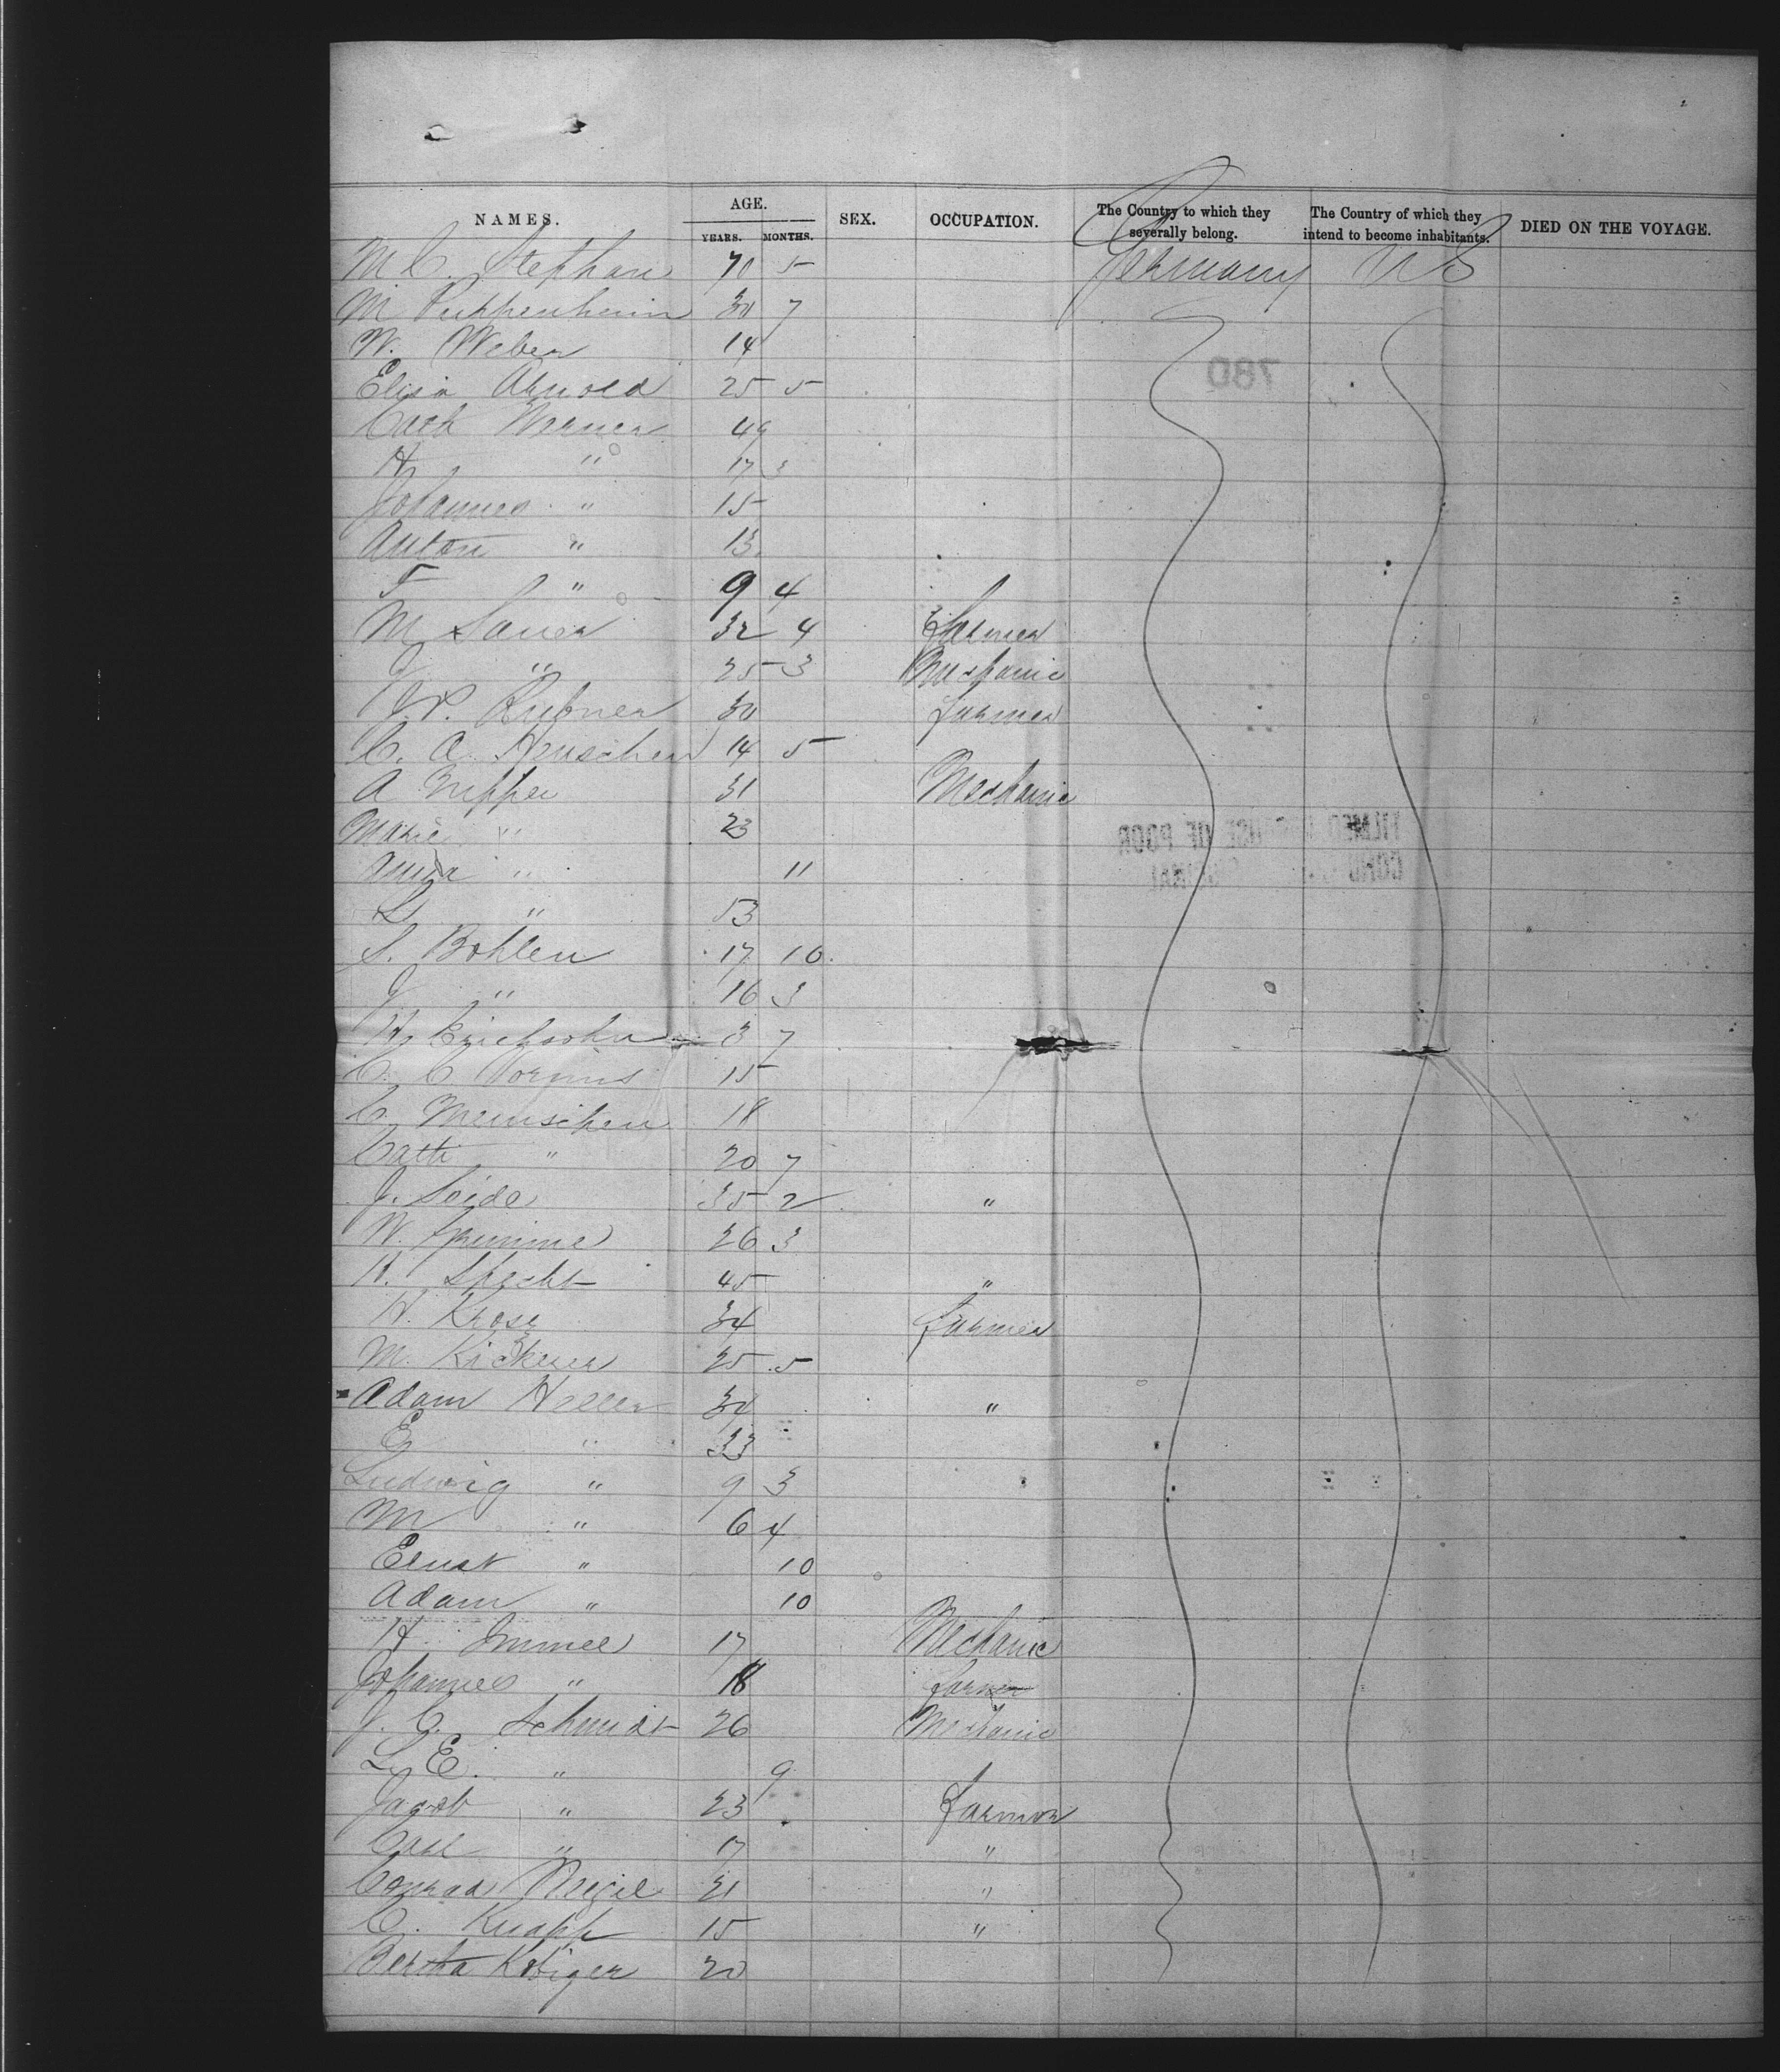 NAMES. AGE. SEX. OCCUPATION. The Country to which they severally belong. The Country of which they intend to become inhabitants. DIED ON THE VOYAGE.
YEARS. MONTHS.
M C. Stephan 70 5 Germany U S
M 30 7
W. Weber 14
780
Elisa Arnold 25 5
Cath Werner 49
H " 17 3
Johannes " 15
Anton " 13
F " 9 4
M Sauer 32 4 Farmer
J " 25 3 Mechanic
J. P. 30 Farmer
C. A. Henschen 14 5
A 31 Mechanic
Marie " 23
FILMED BECAUSE OF POOR
Anna " 11
L " 53
S. Bohlen 17 10
J " 16 3
H. Erichsohn 3 7
C. C 15
C. 18
Cath " 20 7
J. Seide 35 2 "
W. Grimme 26 3
H. Specht 45 "
H. Krose 34 Farmer
M. 25 5
Adam Heller 30 "
E " 33
Ludwig " 9 3
M " 6 4
Ernst " 10
Adam " 10
H. Immel 17 Mechanic
Johannes " 18 Farmer
J. C. Schmidt 26 Mechanic
L. E. " 9
Jacob " 23 Farmer
Carl " 17 "
Conrad 21 "
C. Knapp 15 "
Bertha 20